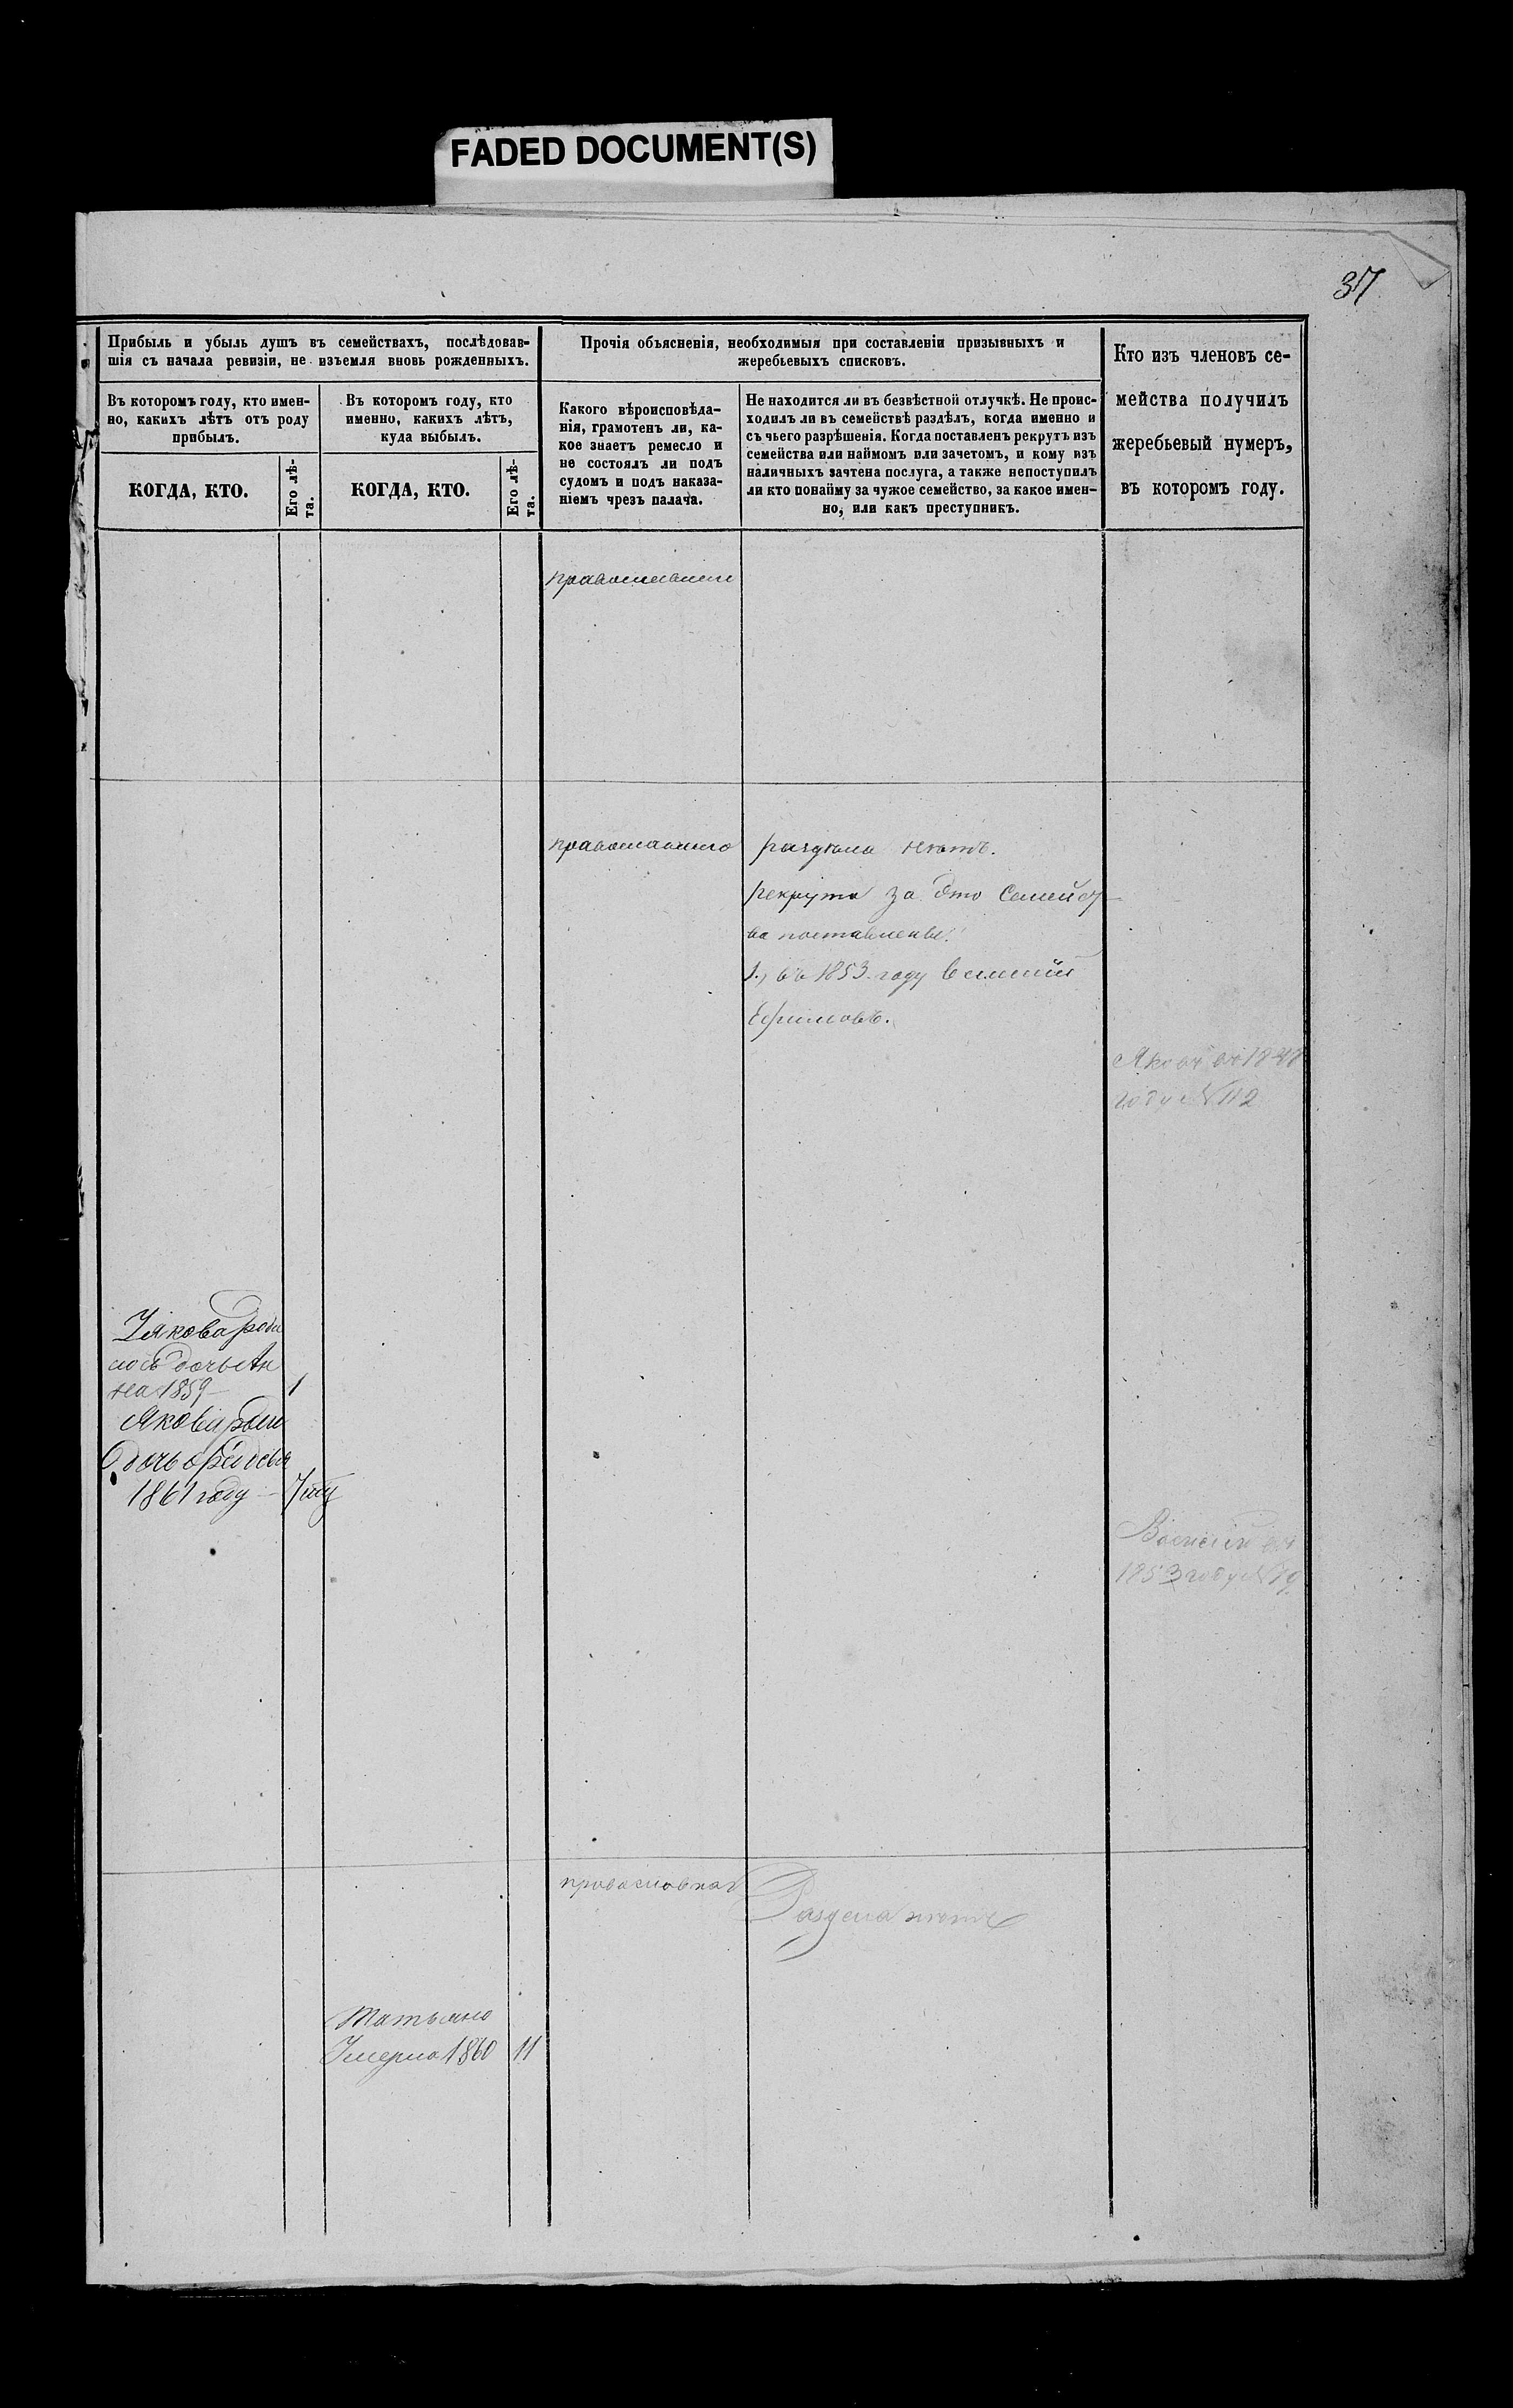 FADED DOCUMENT(S)
37
Прибыль и убыль душъ въ семействахъ, послѣдовав-
шія съ начала ревизіи, не изъемля вновь рожденныхъ.
Въ которомъ году, кто имен-
но, какихъ лѣтъ отъ роду
прибылъ.
КОГДА, КТО.
Его лѣ-
та.
Въ которомъ году, кто
именно, какихъ лѣтъ,
куда выбылъ.
КОГДА, КТО.
Его лѣ-
та.
Прочія объясненія, необходимыя при составленіи призывныхъ и
жеребьевыхъ списковъ.
Какого вѣроисповѣда-
нія, грамотенъ ли, ка-
кое знаетъ ремесло и
не состоялъ ли подъ
судомъ и подъ наказа-
ніемъ чрезъ палача.
Не находится ли въ безвѣстной отлучкѣ. Не проис-
ходилъ ли въ семействѣ раздѣлъ, когда именно и
съ чьего разрѣшенія. Когда поставленъ рекрутъ изъ
семейства или наймомъ или зачетомъ, и кому изъ
наличныхъ зачтена послуга, а также непоступилъ
ли кто понайму за чужое семейство, за какое имен-
но, или какъ преступникъ.
Кто изъ членовъ се-
мейства получилъ
жеребьевый нумеръ,
въ которомъ году.
православнаго
раздѣла нѣтъ.
рекрута за это Семейст
ва поставлены:
1., въ 1853 году Василий
Ефимовъ.
Яковъ въ
году № 112
Уякова роди
лось дочь Ан
на 1859 1
Якова роди
дочь
1861 году
Василий въ
1853 году № 19
православная
Раздела нѣтъ
Татьяна
Умерла 1860 11